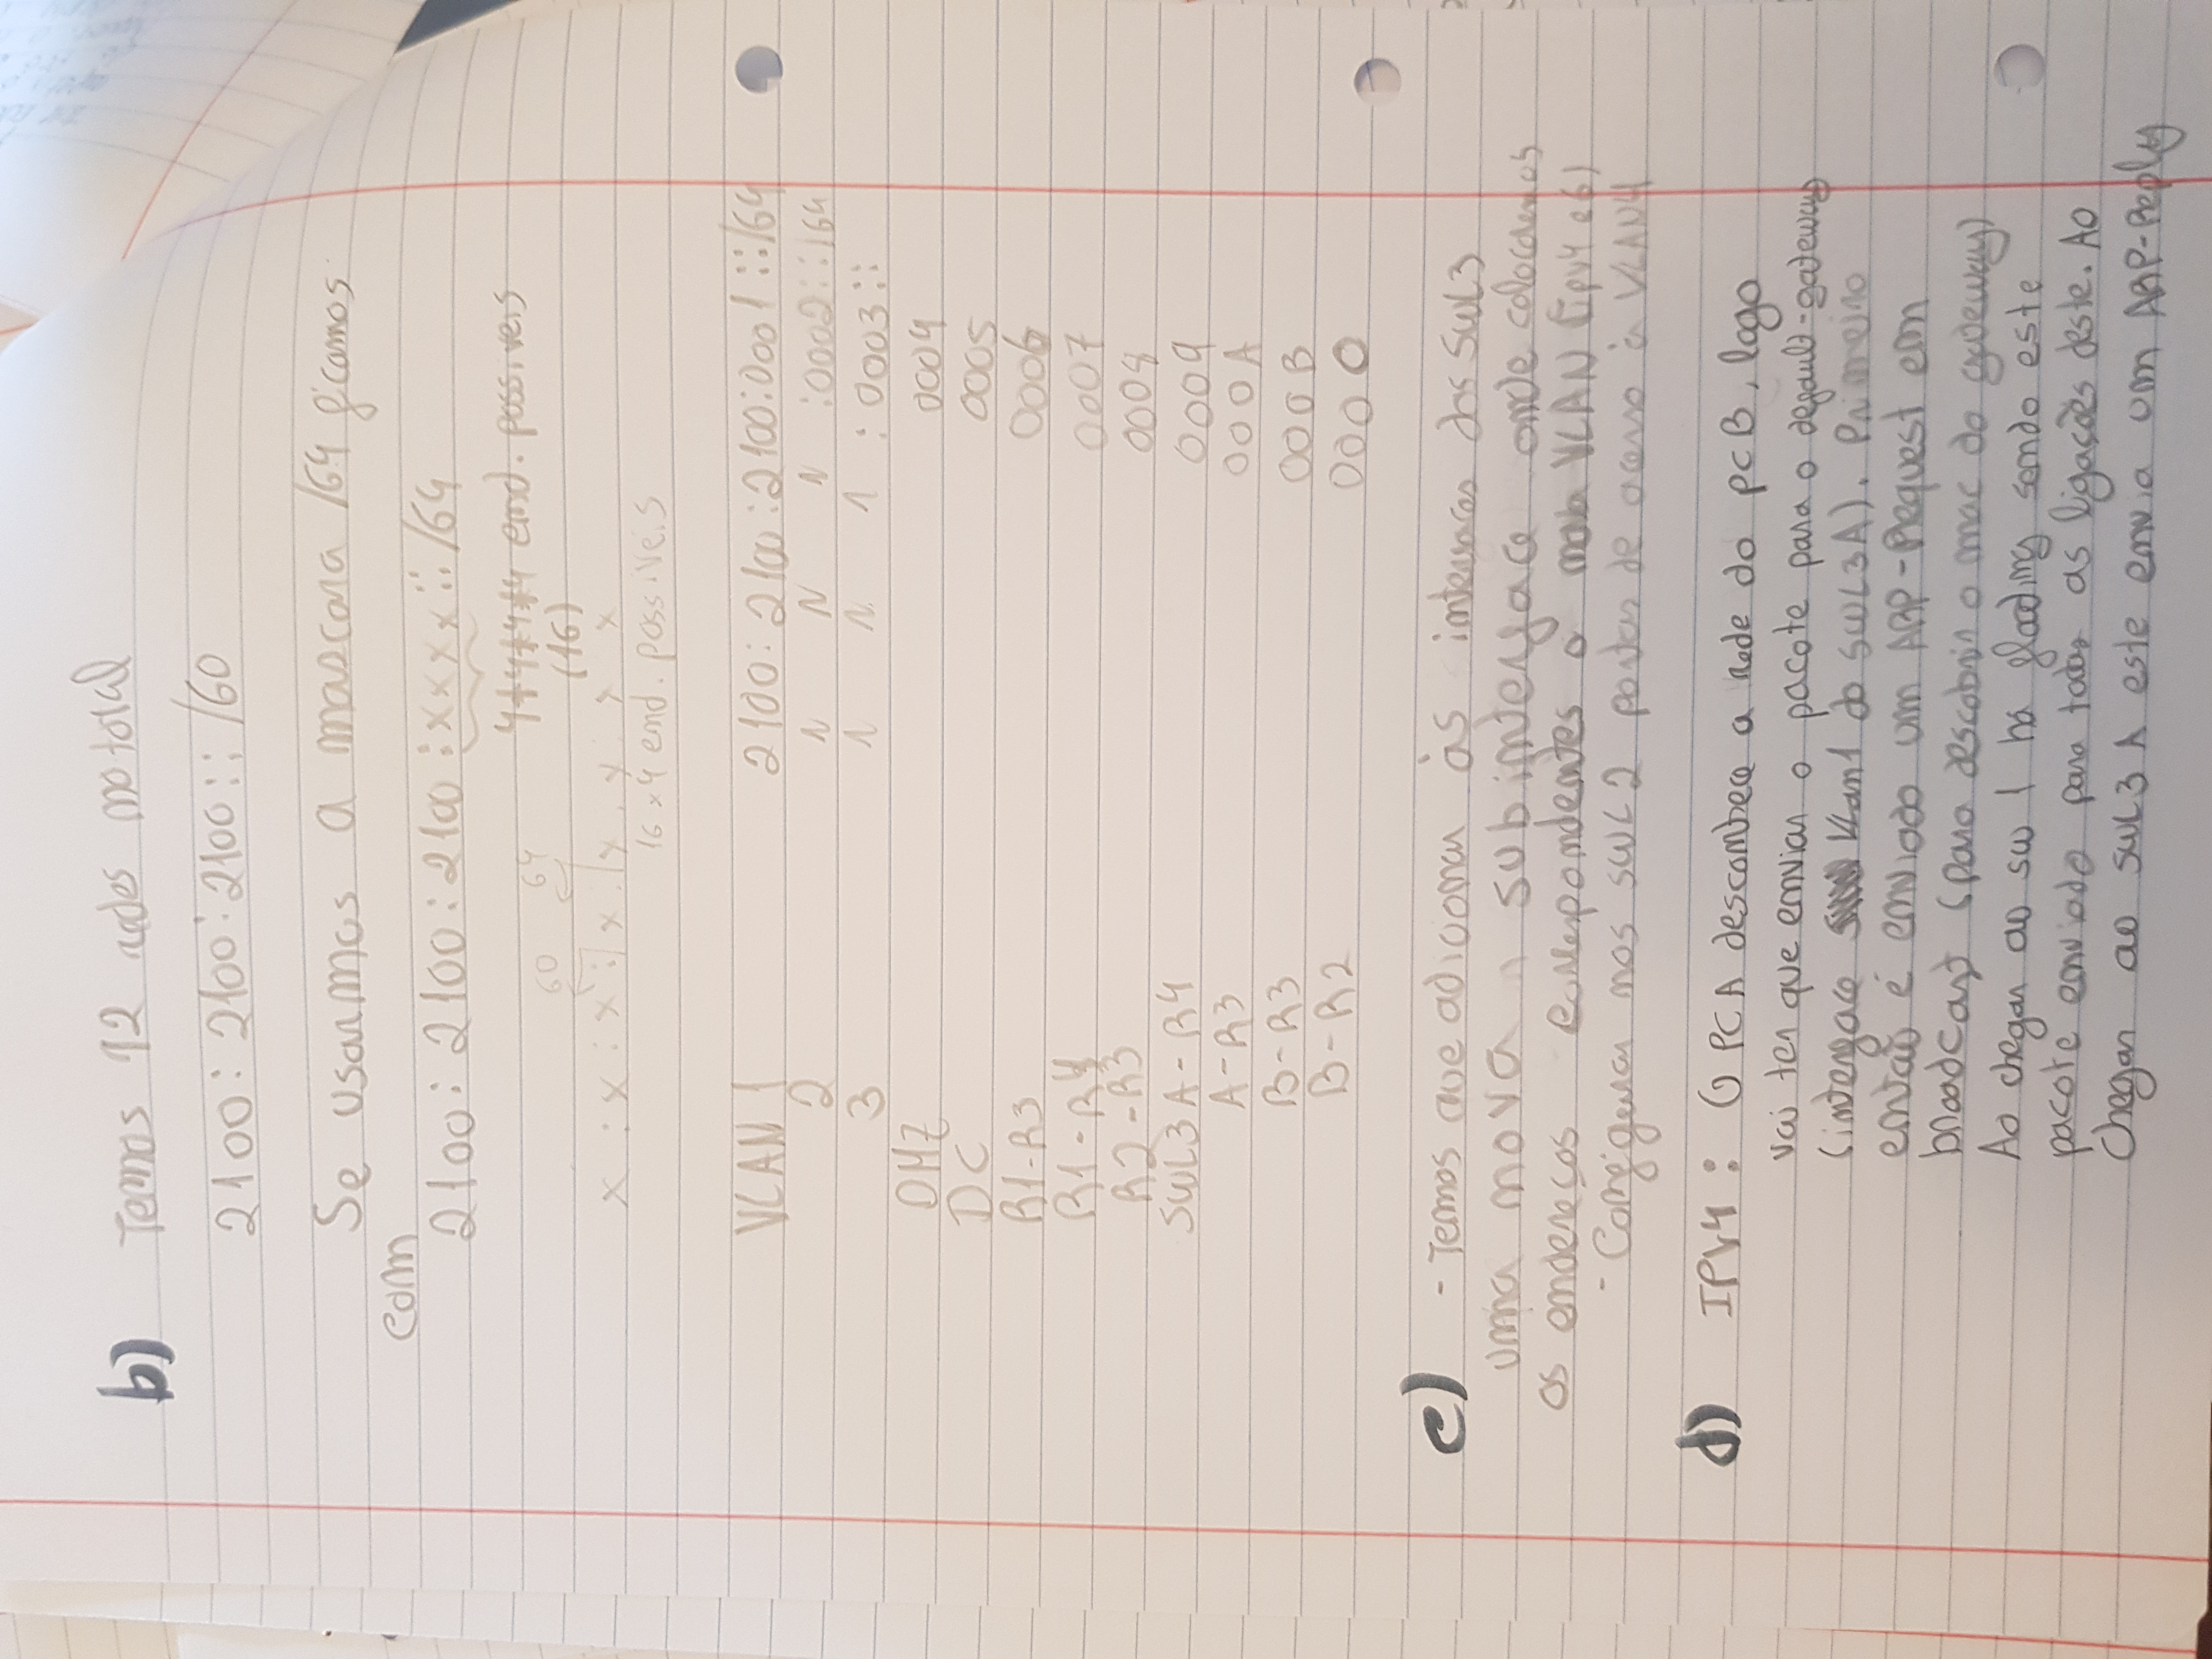 b) Temos 12 redes no total
2100:2100:2100::/60
Se usarmos a mascara /64 ficamos
com
2100:2100:2100:xxxx::/64
4*4*4*4 end. possiveis
60 64
(16)
x : x : x : x : x . x . x x
16 x 4 end. possiveis
VLAN 1 2100:2100:2100:0001::/64
2 " " " :0002::/64
3 " " " :0003::
DMZ 0004
DC 0005
R1-R3 0006
R1-R4 0007
R2-R3 0008
SWL3 A-R4 0009
A-R3 000A
B-R3 000B
B-R2 0000
c) - Temos que adicionar às interfaces dos SWL3
uma nova subinterface onde colocaremos
os endereços correspondentes à nova VLAN (ipv4 e 6)
- Configurar nos SWL2 portas de acesso à VLAN4
d) IPv4: O PCA desconhece a rede do PCB, logo
vai ter que enviar o pacote para o default-gateway
(interface Vlan1 do SWL3A). Primeiro
então é enviado um ARP-Request em
broadcast (para descobrir o mac do gateway)
Ao chegar ao sw 1 há flooding sendo este
pacote enviado para todas as ligações deste. Ao
chegar ao SWL3 A este envia um ARP-Reply